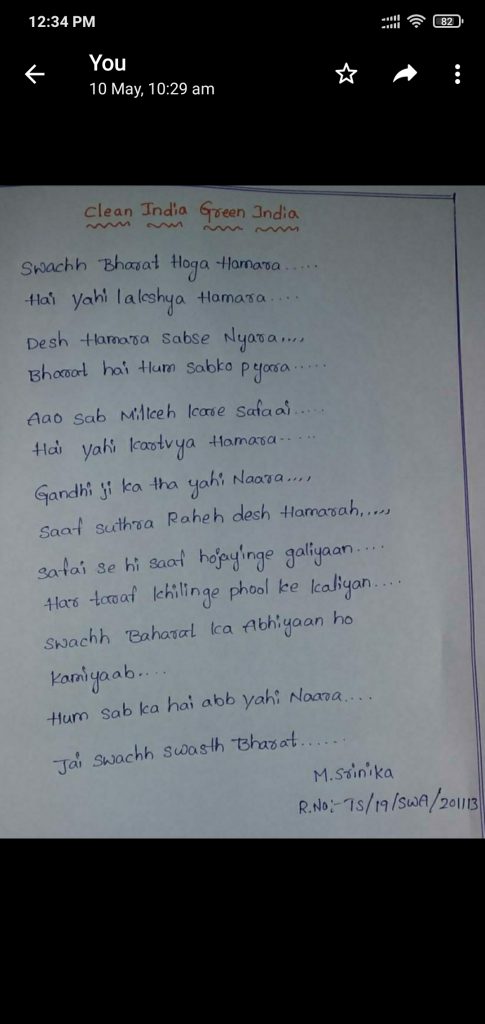 12:34 PM
82
You
10 May, 10:29 am
Clean India Green India
Swachh Bharat Hoga Hamara.....
Hai Yahi lakshya Hamara....
Desh Hamara Sabse Nyara....
Bharat hai Hum Sabko pyara.....
Aao sab Milkeh kare safaai.....
Hai yahi kartvya Hamara.....
Gandhi ji ka tha yahi Naara....,
Saaf suthra Raheh desh Hamarah,....,
Safai se hi saaf hojayinge galiyaan....
Har taraf khilinge phool ke kaliyan....
Swachh Baharat ka Abhiyaan ho
kamiyaab....
Hum sab ka hai abb yahi Naara....
Jai swachh swasth Bharat......
M.Srinika
R.No:- TS/19/SWA/201113